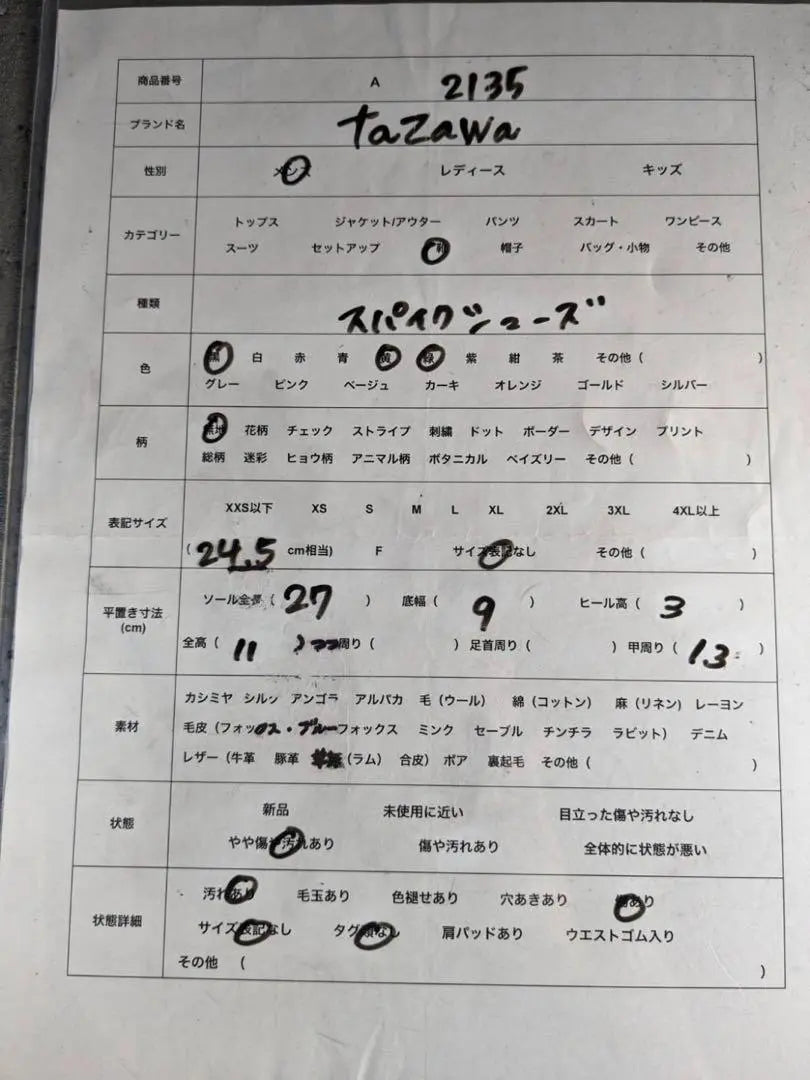 商品番号 A 2135
ブランド名 tazawa
性別 メンズ レディース キッズ
カテゴリー
トップス ジャケット/アウター パンツ スカート ワンピース
スーツ セットアップ 靴 帽子 バッグ・小物 その他
種類 スパイクシューズ
色
黒 白 赤 青 黄 緑 紫 紺 茶 その他( )
グレー ピンク ベージュ カーキ オレンジ ゴールド シルバー
柄
無地 花柄 チェック ストライプ 刺繍 ドット ボーダー デザイン プリント
総柄 迷彩 ヒョウ柄 アニマル柄 ボタニカル ペイズリー その他( )
表記サイズ
XXS以下 XS S M L XL 2XL 3XL 4XL以上
(24.5 cm相当) F サイズ表記なし その他( )
平置き寸法
(cm)
ソール全長( 27 ) 底幅( 9 ) ヒール高( 3 )
全高( 11 ) つつ周り( ) 足首周り( ) 甲周り( 13 )
素材
カシミヤ シルク アンゴラ アルパカ 毛(ウール) 綿(コットン) 麻(リネン) レーヨン
毛皮(フォックス・ブルーフォックス ミンク セーブル チンチラ ラビット) デニム
レザー(牛革 豚革 (ラム) 合皮) ボア 裏起毛 その他( )
状態
新品 未使用に近い 目立った傷や汚れなし
やや傷や汚れあり 傷や汚れあり 全体的に状態が悪い
状態詳細
汚れあり 毛玉あり 色褪せあり 穴あきあり 傷あり
サイズ表記なし タグ類なし 肩パッドあり ウエストゴム入り
その他 ( )